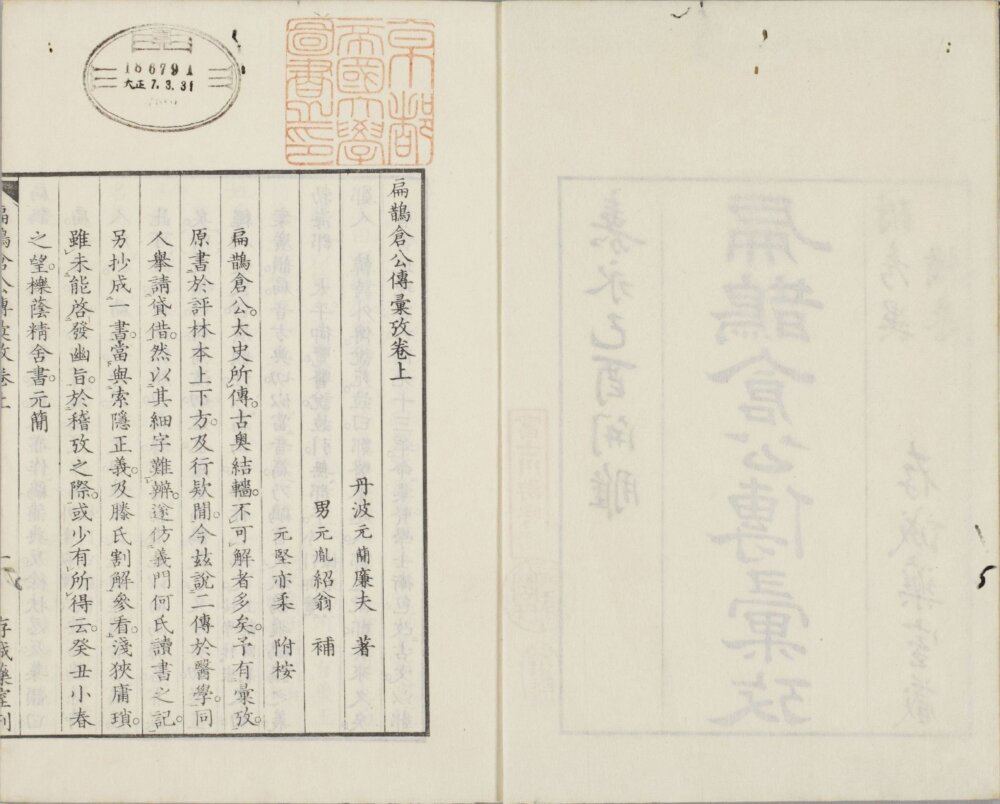 186791
大正7.3.31
京都
帝國大學
圖書之印
扁鵲倉公傳彙攷卷上
丹波元簡廉夫 著
男元胤紹翁 補
元堅亦柔 附桉
扁鵲倉公。太史所傳。古奥結轖。不可解者多矣。予有彙攷。
原書於評林本上下方。及行欵間。今玆說二傳於醫學。同
人舉請貸借。然以其細字難辨。遂仿義門何氏讀書之記。
另抄成一書。當與索隱正義。及滕氏割解參看。淺狹庸瑣。
雖未能啓發幽旨。於稽攷之際。或少有所得云。癸丑小春
之望。櫟蔭精舍書。元簡
扁鵲倉公傳彙攷卷上
一
存誠藥室刊
扁鵲倉公傳彙攷
嘉永己酉開雕
存誠藥室藏